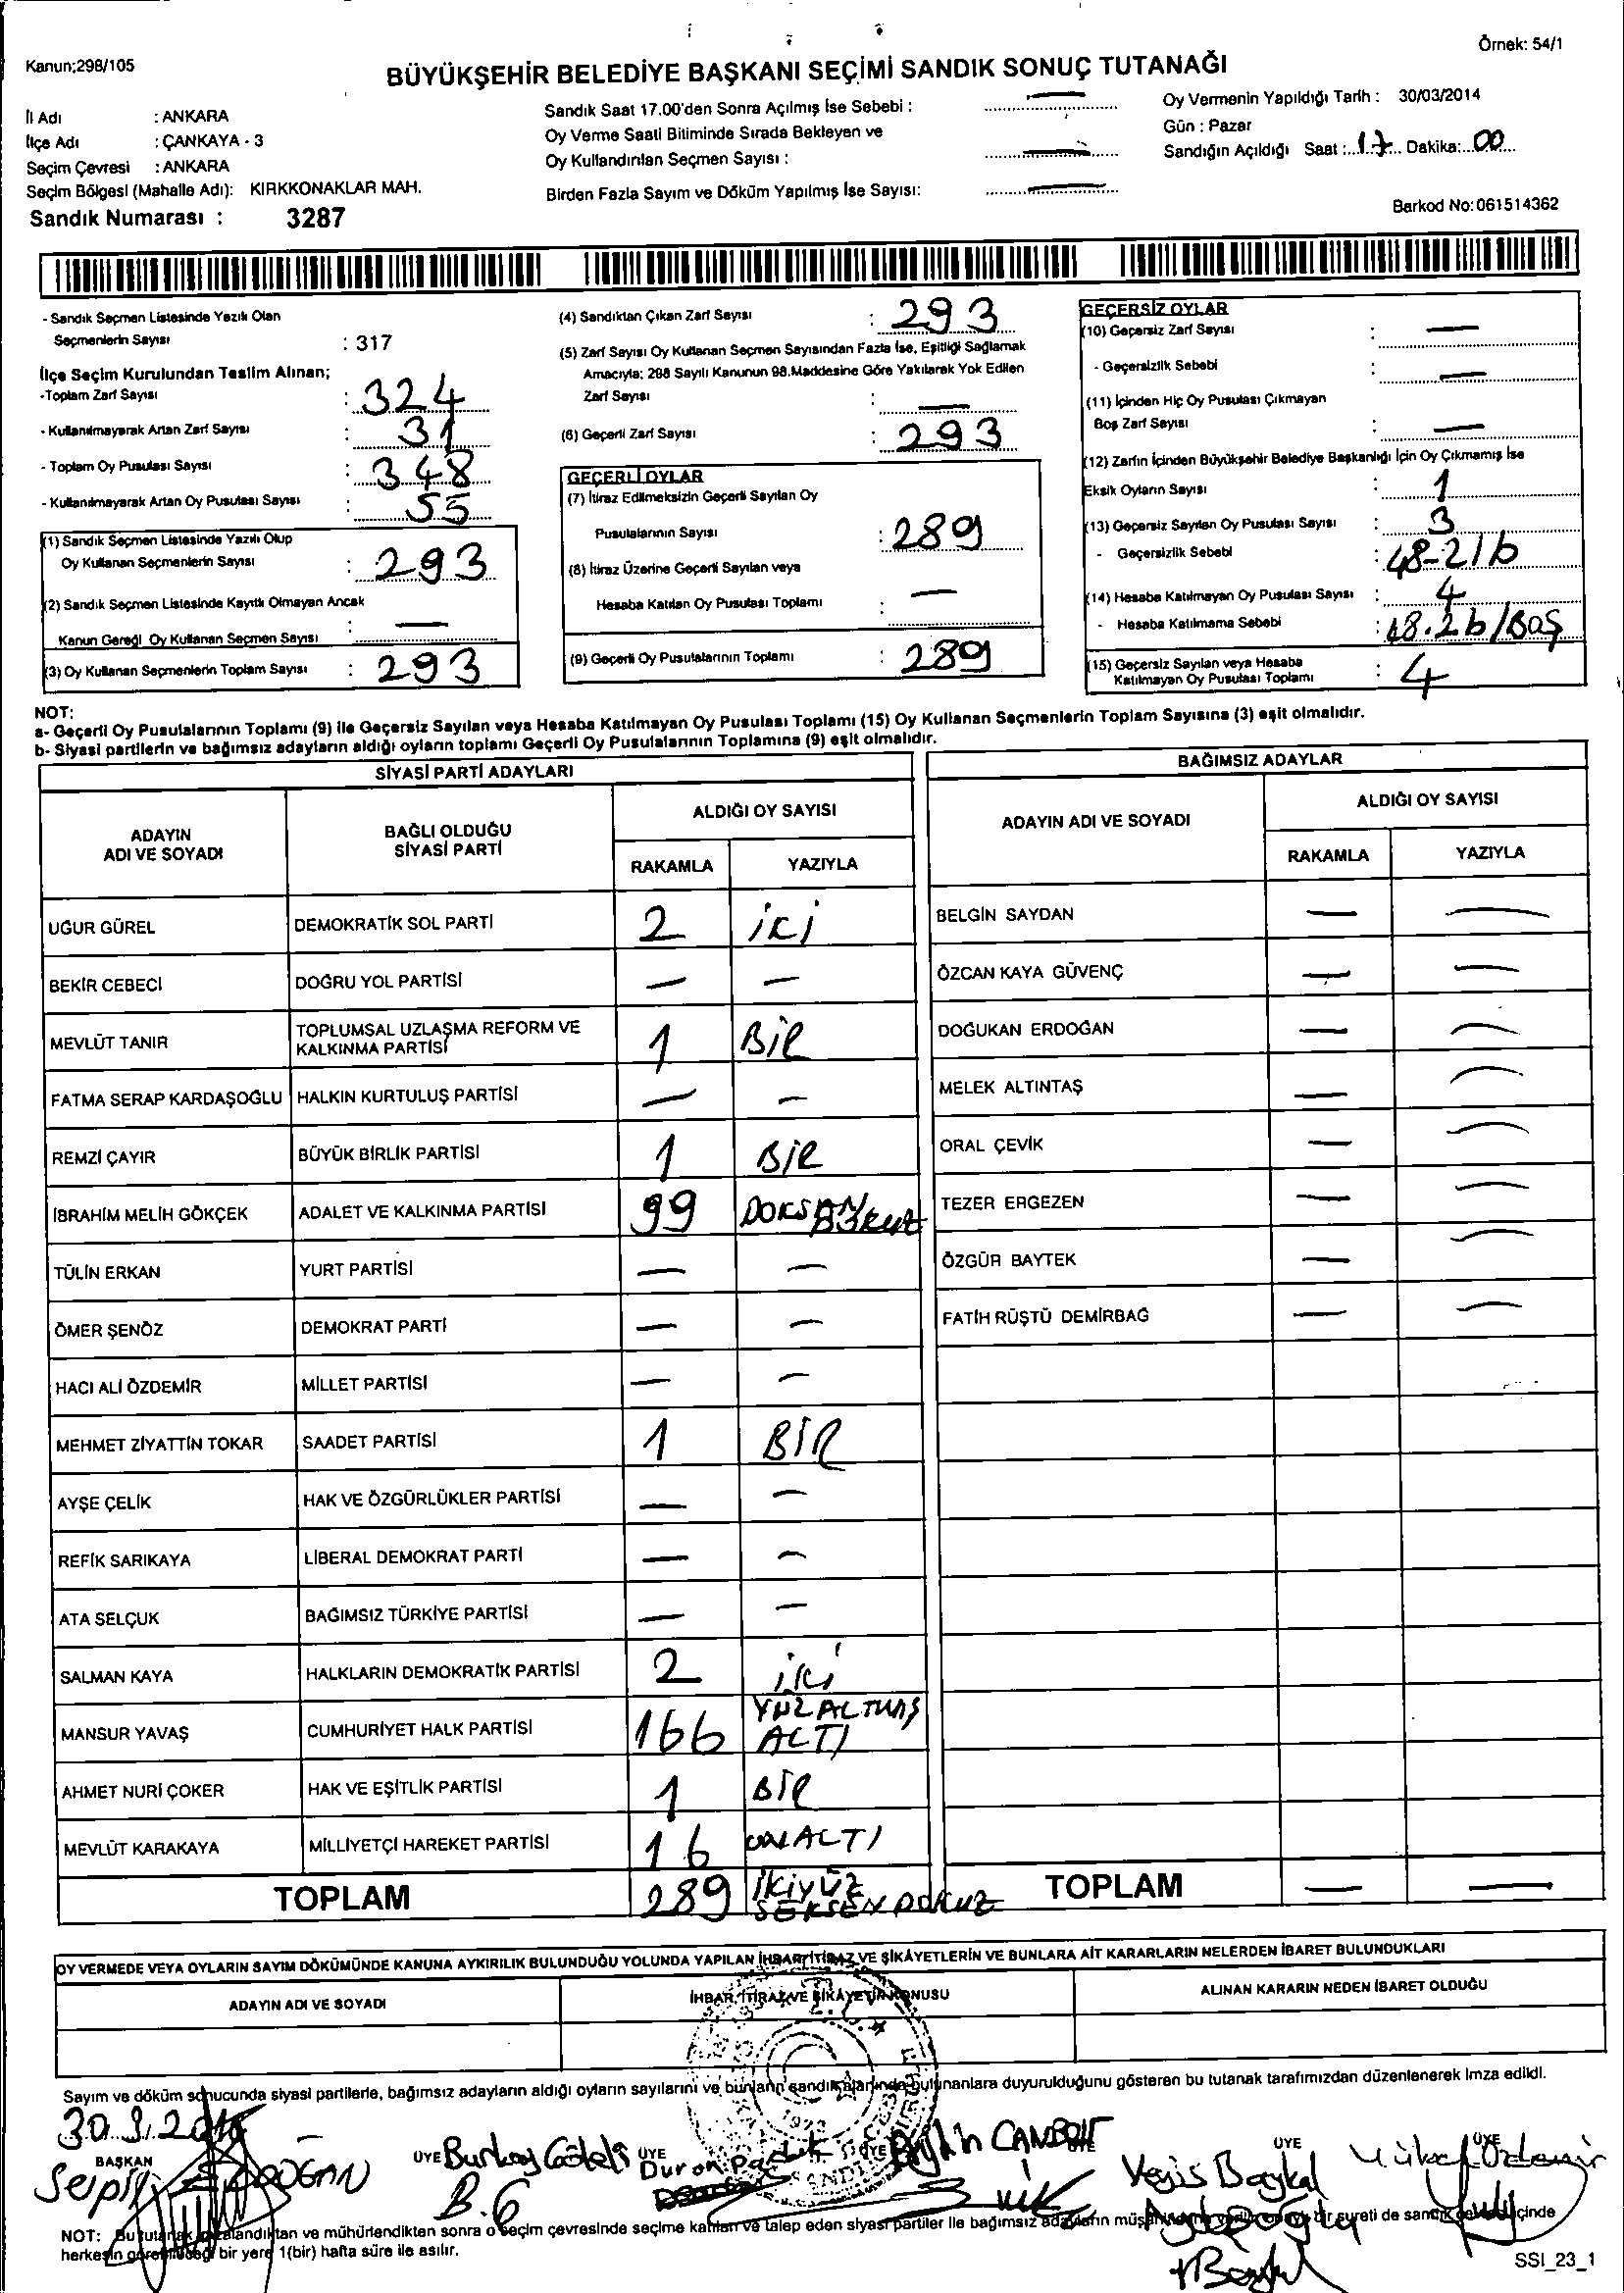 Örnek: 54/1
Kanun;298/105
BÜYÜKŞEHİR BELEDİYE BAŞKANI SEÇİMİ SANDIK SONUÇ TUTANAĞI
İl Adı : ANKARA
İlçe Adı : ÇANKAYA - 3
Seçim Çevresi : ANKARA
Seçim Bölgesi (Mahalle Adı): KIRKKONAKLAR MAH.
Sandık Numarası : 3287
Sandık Saat 17.00'den Sonra Açılmış İse Sebebi : —
Oy Verme Saati Bitiminde Sırada Bekleyen ve
Oy Kullandırılan Seçmen Sayısı : —
Birden Fazla Sayım ve Döküm Yapılmış İse Sayısı: —
Oy Vermenin Yapıldığı Tarih : 30/03/2014
Gün : Pazar
Sandığın Açıldığı Saat : 17 Dakika: 00
Barkod No: 061514362
- Sandık Seçmen Listesinde Yazılı Olan
Seçmenlerin Sayısı : 317
İlçe Seçim Kurulundan Teslim Alınan;
-Toplam Zarf Sayısı : 324
- Kullanılmayarak Artan Zarf Sayısı : 31
- Toplam Oy Pusulası Sayısı : 348
- Kullanılmayarak Artan Oy Pusulası Sayısı : 55
(1) Sandık Seçmen Listesinde Yazılı Olup
Oy Kullanan Seçmenlerin Sayısı : 293
(2) Sandık Seçmen Listesinde Kayıtlı Olmayan Ancak
Kanun Gereği Oy Kullanan Seçmen Sayısı : —
(3) Oy Kullanan Seçmenlerin Toplam Sayısı : 293
(4) Sandıktan Çıkan Zarf Sayısı : 293
(5) Zarf Sayısı Oy Kullanan Seçmen Sayısından Fazla İse, Eşitliği Sağlamak
Amacıyla; 298 Sayılı Kanunun 98.Maddesine Göre Yakılarak Yok Edilen
Zarf Sayısı : —
(6) Geçerli Zarf Sayısı : 293
GEÇERLİ OYLAR
(7) İtiraz Edilmeksizin Geçerli Sayılan Oy
Pusulalarının Sayısı : 289
(8) İtiraz Üzerine Geçerli Sayılan veya
Hesaba Katılan Oy Pusulası Toplamı : —
(9) Geçerli Oy Pusulalarının Toplamı : 289
GEÇERSİZ OYLAR
(10) Geçersiz Zarf Sayısı : —
- Geçersizlik Sebebi : —
(11) İçinden Hiç Oy Pusulası Çıkmayan
Boş Zarf Sayısı : —
(12) Zarfın İçinden Büyükşehir Belediye Başkanlığı İçin Oy Çıkmamış İse
Eksik Oyların Sayısı : 1
(13) Geçersiz Sayılan Oy Pusulası Sayısı : 3
- Geçersizlik Sebebi : 48-2/b
(14) Hesaba Katılmayan Oy Pusulası Sayısı : 4
- Hesaba Katılmama Sebebi : 48.2b/BOŞ
(15) Geçersiz Sayılan veya Hesaba
Katılmayan Oy Pusulası Toplamı : 4
NOT:
a- Geçerli Oy Pusulalarının Toplamı (9) ile Geçersiz Sayılan veya Hesaba Katılmayan Oy Pusulası Toplamı (15) Oy Kullanan Seçmenlerin Toplam Sayısına (3) eşit olmalıdır.
b- Siyasi partilerin ve bağımsız adayların aldığı oyların toplamı Geçerli Oy Pusulalarının Toplamına (9) eşit olmalıdır.
SİYASİ PARTİ ADAYLARI
ADAYIN ADI VE SOYADI
BAĞLI OLDUĞU SİYASİ PARTİ
ALDIĞI OY SAYISI
RAKAMLA YAZIYLA
UĞUR GÜREL DEMOKRATİK SOL PARTİ 2 İKİ
BEKİR CEBECİ DOĞRU YOL PARTİSİ — —
MEVLÜT TANIR TOPLUMSAL UZLAŞMA REFORM VE KALKINMA PARTİSİ 1 BİR
FATMA SERAP KARDAŞOĞLU HALKIN KURTULUŞ PARTİSİ — —
REMZİ ÇAYIR BÜYÜK BİRLİK PARTİSİ 1 BİR
İBRAHİM MELİH GÖKÇEK ADALET VE KALKINMA PARTİSİ 99 DOKSAN DOKUZ
TÜLİN ERKAN YURT PARTİSİ — —
ÖMER ŞENÖZ DEMOKRAT PARTİ — —
HACI ALİ ÖZDEMİR MİLLET PARTİSİ — —
MEHMET ZİYATTİN TOKAR SAADET PARTİSİ 1 BİR
AYŞE ÇELİK HAK VE ÖZGÜRLÜKLER PARTİSİ — —
REFİK SARIKAYA LİBERAL DEMOKRAT PARTİ — —
ATA SELÇUK BAĞIMSIZ TÜRKİYE PARTİSİ — —
SALMAN KAYA HALKLARIN DEMOKRATİK PARTİSİ 2 İKİ
MANSUR YAVAŞ CUMHURİYET HALK PARTİSİ 166 YÜZALTMIŞ ALTI
AHMET NURİ ÇOKER HAK VE EŞİTLİK PARTİSİ 1 BİR
MEVLÜT KARAKAYA MİLLİYETÇİ HAREKET PARTİSİ 16 ONALTI
TOPLAM 289 İKİYÜZ SEKSEN DOKUZ
BAĞIMSIZ ADAYLAR
ADAYIN ADI VE SOYADI
ALDIĞI OY SAYISI
RAKAMLA YAZIYLA
BELGİN SAYDAN — —
ÖZCAN KAYA GÜVENÇ — —
DOĞUKAN ERDOĞAN — —
MELEK ALTINTAŞ — —
ORAL ÇEVİK — —
TEZER ERGEZEN — —
ÖZGÜR BAYTEK — —
FATİH RÜŞTÜ DEMİRBAĞ — —
TOPLAM — —
OY VERMEDE VEYA OYLARIN SAYIM DÖKÜMÜNDE KANUNA AYKIRILIK BULUNDUĞU YOLUNDA YAPILAN İHBAR, İTİRAZ VE ŞİKAYETLERİN VE BUNLARA AİT KARARLARIN NELERDEN İBARET BULUNDUKLARI
ADAYIN ADI VE SOYADI
İHBAR, İTİRAZ VE ŞİKAYETİN KONUSU
ALINAN KARARIN NEDEN İBARET OLDUĞU
Sayım ve döküm sonucunda siyasi partilerle, bağımsız adayların aldığı oyların sayılarını ve bunların sandık alanında bulunanlara duyurulduğunu gösteren bu tutanak tarafımızdan düzenlenerek imza edildi.
BAŞKAN ÜYE ÜYE ÜYE ÜYE ÜYE ÜYE
B.G
NOT: Bu tutanak imzalandıktan ve mühürlendikten sonra o seçim çevresinde seçime katılan ve talep eden siyasi partiler ile bağımsız adayların
herkesin görebileceği bir yere 1(bir) hafta süre ile asılır.
SSI_23_1